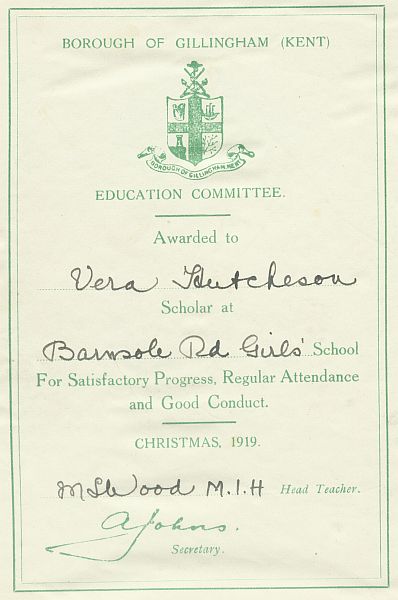 BOROUGH OF GILLINGHAM (KENT)
BOROUGH OF GILLINGHAM, KENT
EDUCATION COMMITTEE.
Awarded to
Vera Hutcheson
Scholar at
Barnsole Rd Girls' School
For Satisfactory Progress, Regular Attendance
and Good Conduct.
CHRISTMAS, 1919.
M S Wood M.I.H Head Teacher.
A Johns.
Secretary.